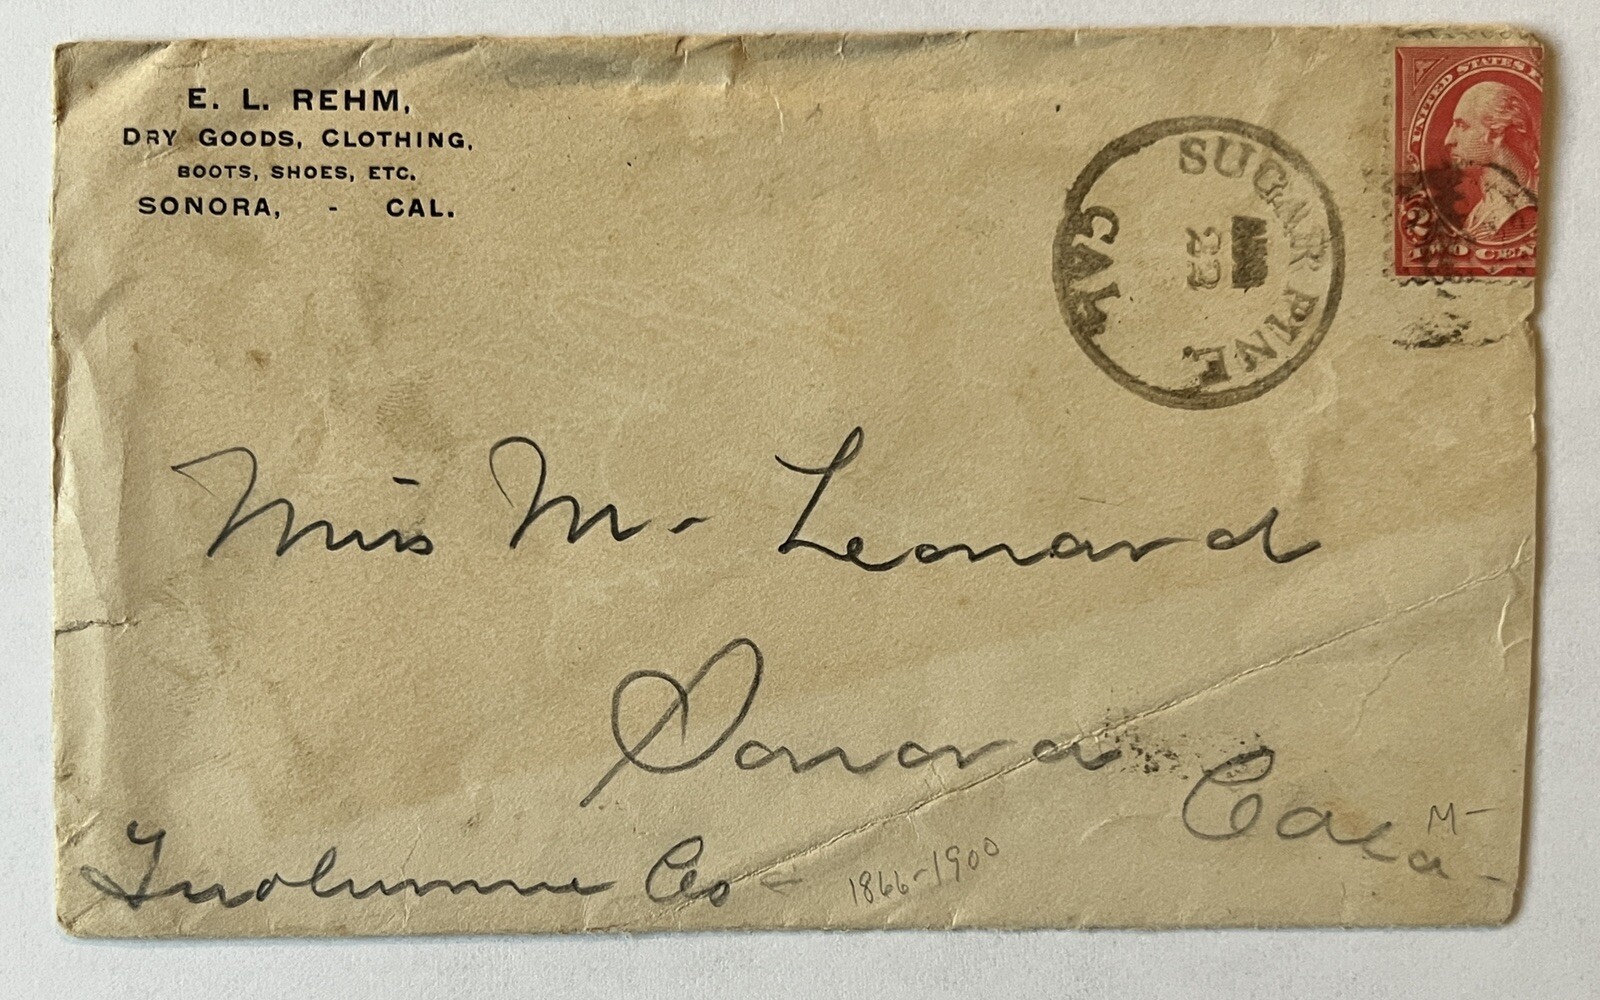 E. L. REHM,
DRY GOODS, CLOTHING,
BOOTS, SHOES, ETC.
SONORA, - CAL.
SUGAR PINE
CAL
22
UNITED STATES P
2
TWO CEN
Miss M- Leonard
Sonora
Cala-
Tuolumne Co-
1866-1900
M-